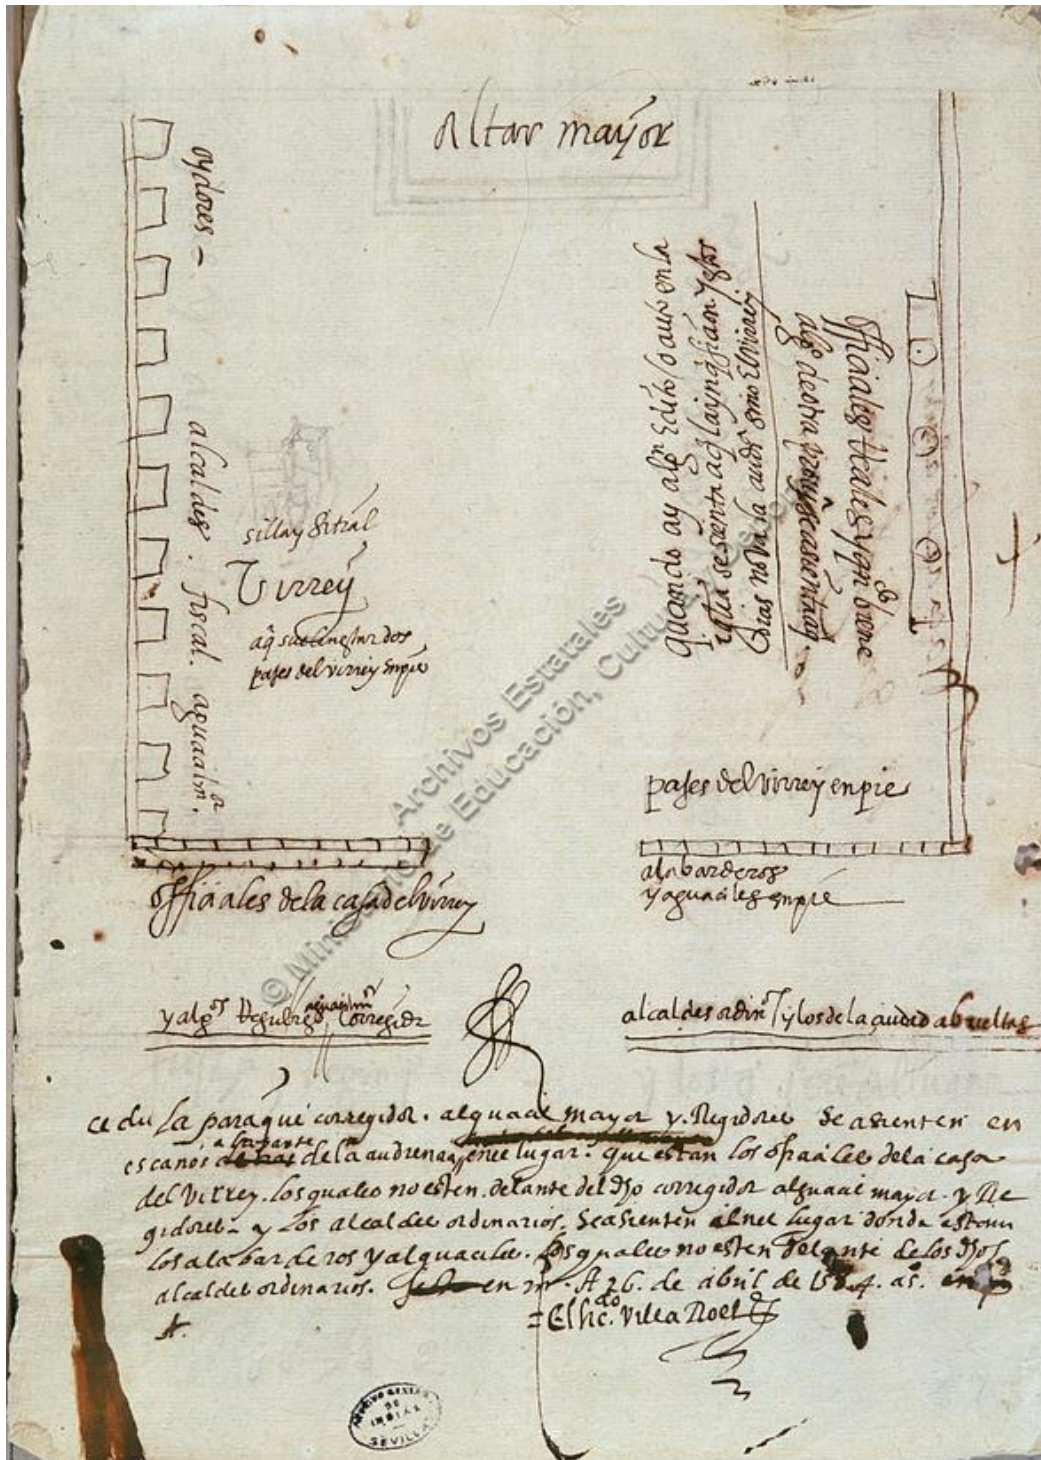 altar mayor
oydores -
alcaldes . fiscal . aguazil mor.
silla y sitial
Virrey
aq suelen estar dos
pajes del virrey en pie
quando ay algn edicto o auto en la
iglia se sienta aq la inqsicion y estos
dias no va la audia sino el virrey
algo de otra
officiales reales y qndo viene
pajes del virrey en pie
alabarderos
y aguaciles en pie
officiales de la casa del virrey
y algos Regidores aguacil mor corregidor
alcaldes ordinos y los de la ciudad a bueltas
cedula para que corregidor. alguacil mayor y. Regidores se asienten en
escanos a la parte de la audiencia, en el lugar. que estan los oficiales de la casa
del virrey. los quales no esten. delante del dho corregidor alguacil mayor. y Re
gidores - y los alcaldes ordinarios. se asienten en el lugar donde estan
los alabarderos y alguaciles. los quales no esten delante de los dhos
alcaldes ordinarios. en md. A 26. de abril de 1584. as.
= El licdo. Villa Roel
ARCHIVO GENERAL
DE
INDIAS
SEVILLA
© Ministerio de Educación, Cultura
Archivos Estatales